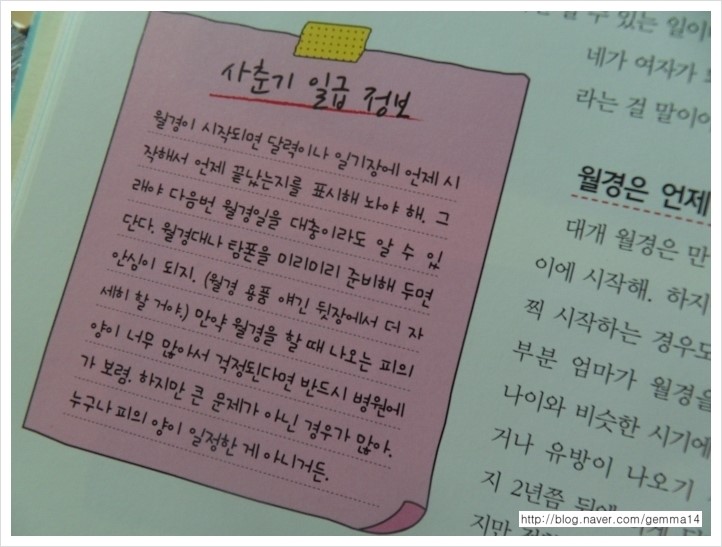 사춘기 일급 정보
월경이 시작되면 달력이나 일기장에 언제 시
작해서 언제 끝났는지를 표시해 놔야 해. 그
래야 다음번 월경일을 대충이라도 알 수 있
단다. 월경대나 탐폰을 미리미리 준비해 두면
안심이 되지. (월경 용품 얘긴 뒷장에서 더 자
세히 할 거야.) 만약 월경을 할 때 나오는 피의
양이 너무 많아서 걱정된다면 반드시 병원에
가 보렴. 하지만 큰 문제가 아닌 경우가 많아.
누구나 피의 양이 일정한 게 아니거든.
수 있는 일이
네가 여자가
라는 걸 말이
월경은 언제
대개 월경은 만
이에 시작해. 하지
찍 시작하는 경우도
부분 엄마가 월경을
나이와 비슷한 시기에
거나 유방이 나오기
지 2년쯤 뒤에
지만
http://blog.naver.com/gemma14